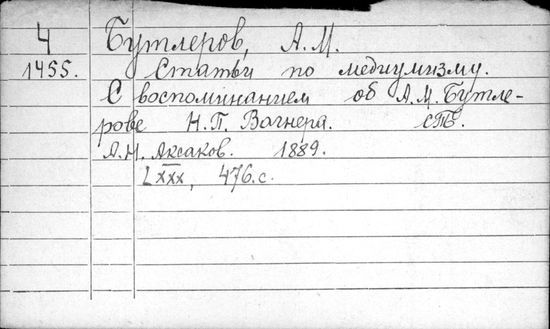 4 Бутлеров, А.М.
1455. Статьи по медиумизму.
С воспоминанием об А.М. Бутле-
рове Н.П. Вагнера. СПб.
А.Н. Аксаков. 1889.
LXXX, 476.с.